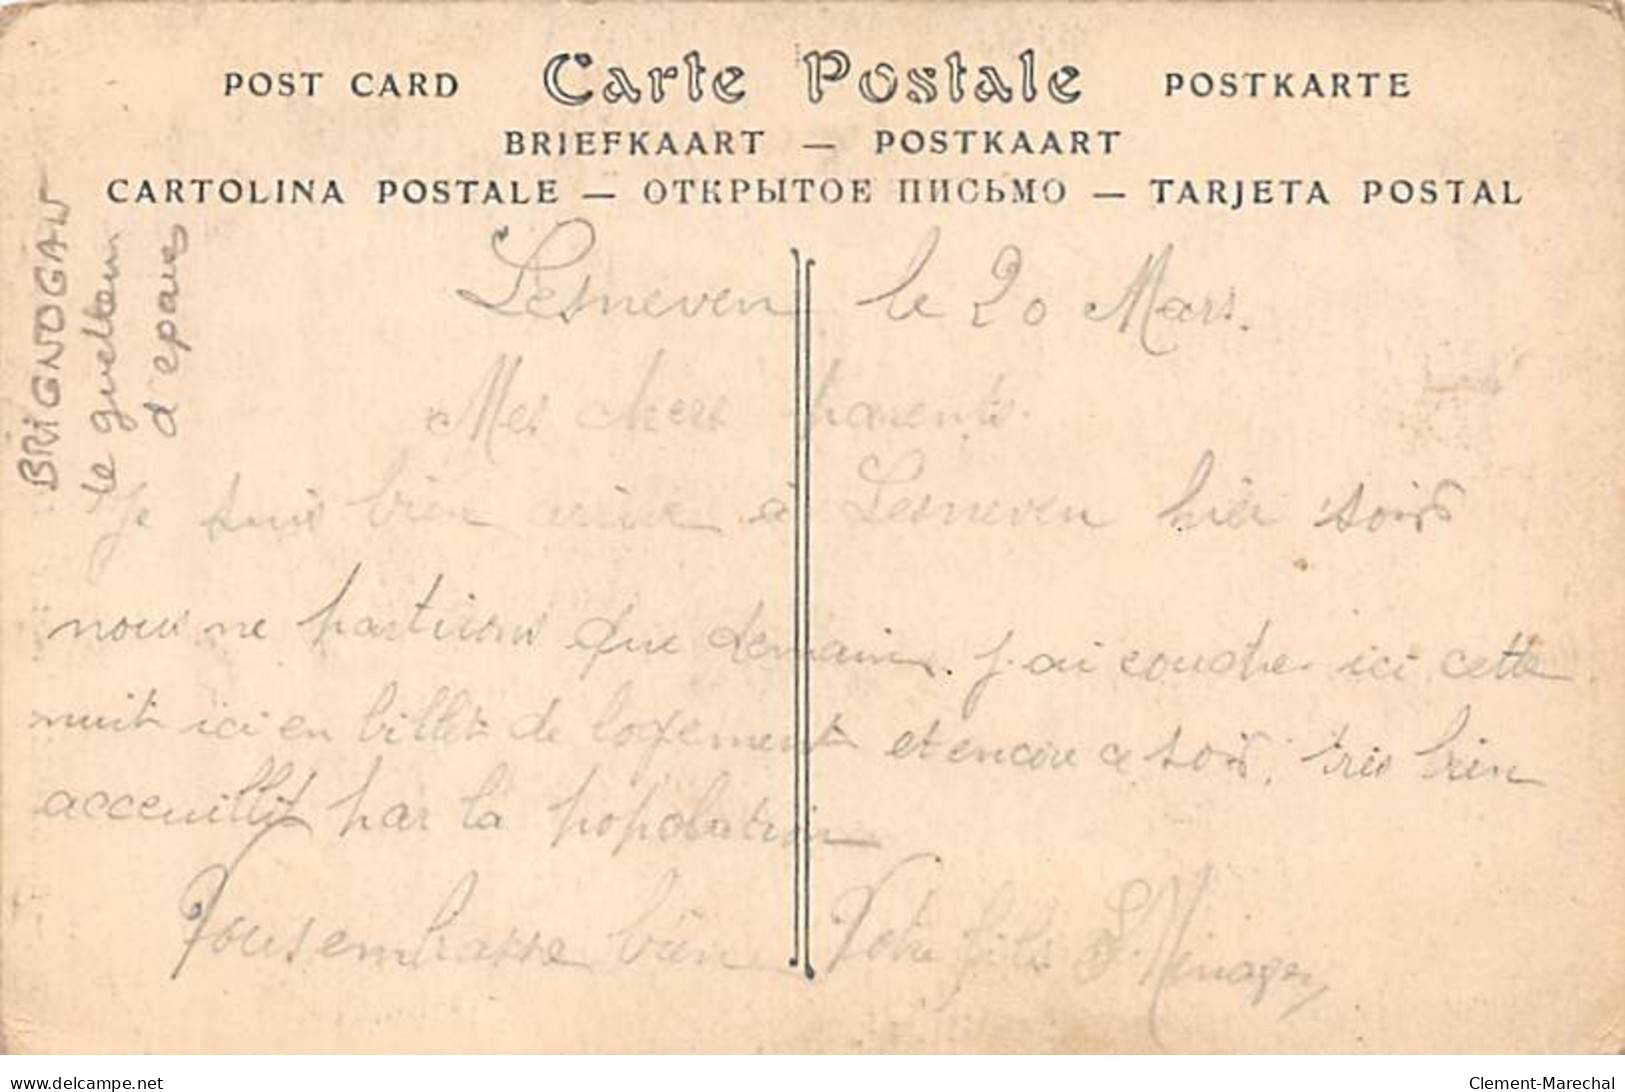 POST CARD Carte Postale POSTKARTE
BRIEFKAART — POSTKAART
CARTOLINA POSTALE — ОТКРЫТОЕ ПИСЬМО — TARJETA POSTAL
BRIGNOGAN
le guetteur
d'epaves
Lesneven le 20 Mars.
Mes chers parents.
Je suis bien arrivé à Lesneven hier soir
nous ne partirons que demain. J'ai couché ici cette
nuit ici en billet de logement et encore ce soir, très bien
acceuillit par la popolation
Vous embrasse bien Votre fils
delcampe.net
Clement-Marechal